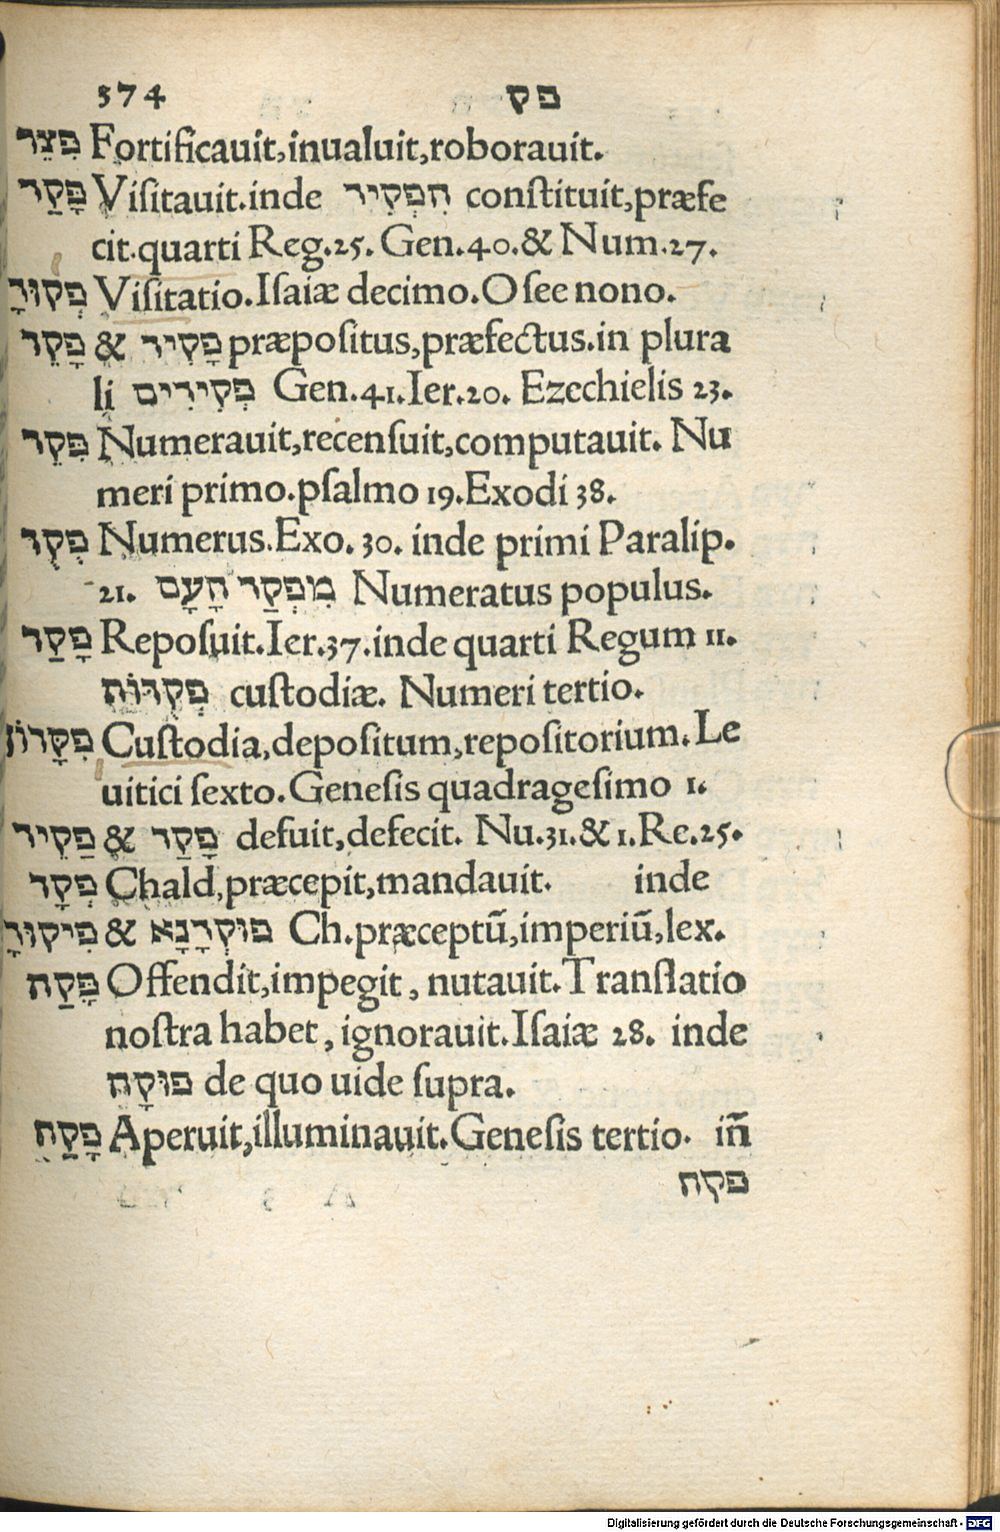 574 פק
פִצֵר Fortificauit,inualuit,roborauit.
פָּקַד Visitauit.inde הִפְקִיד constituit,præfe
cit.quarti Reg.25. Gen.40.& Num.27.
פְקוּדָ Visitatio.Isaiæ decimo.Osee nono.
פָקֵד & פָקִיד præpositus,præfectus.in plura
li פְקִידִים Gen.41.Ier.20. Ezechielis 23.
פִקֵד Numerauit,recensuit,computauit. Nu
meri primo.psalmo 19.Exodi 38.
פְקֻד Numerus.Exo.30. inde primi Paralip.
21. מִפְקַד הָעָם Numeratus populus.
פָקַד Reposuit.Ier.37.inde quarti Regum 11.
פְקֻדּוֹת custodiæ. Numeri tertio.
פִקָּדוֹן Custodia,depositum,repositorium.Le
uitici sexto.Genesis quadragesimo 1.
פַקִיד & פָקַד defuit,defecit. Nu.31.& 1.Re.25.
פְקָד Chald,præcepit,mandauit. inde
פִיקוּדָ & פוּקְדָנָא Ch.præceptū,imperiū,lex.
פָּקַח Offendit,impegit, nutauit.Translatio
nostra habet, ignorauit.Isaiæ 28. inde
פוּקָה de quo uide supra.
פָקַח Aperuit,illuminauit.Genesis tertio. in̄
פקח
Digitalisierung gefördert durch die Deutsche Forschungsgemeinschaft - DFG